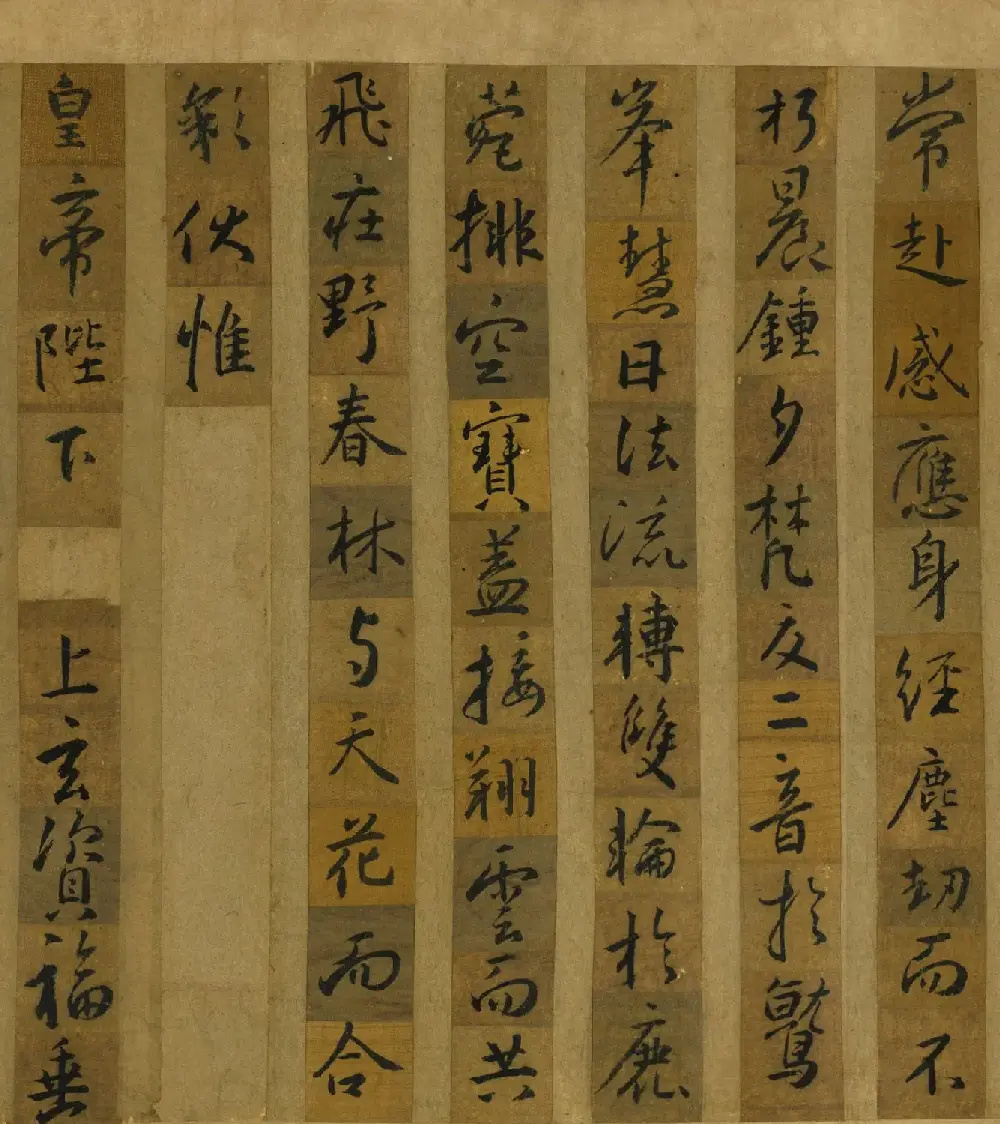 常赴感應身經塵劫而不
朽晨鍾夕梵交二音於鷲
峯慧日法流轉雙輪於鹿
菀排空寶蓋接翔雲而共
飛莊野春林与天花而合
彩伏惟
皇帝陛下上玄資福垂